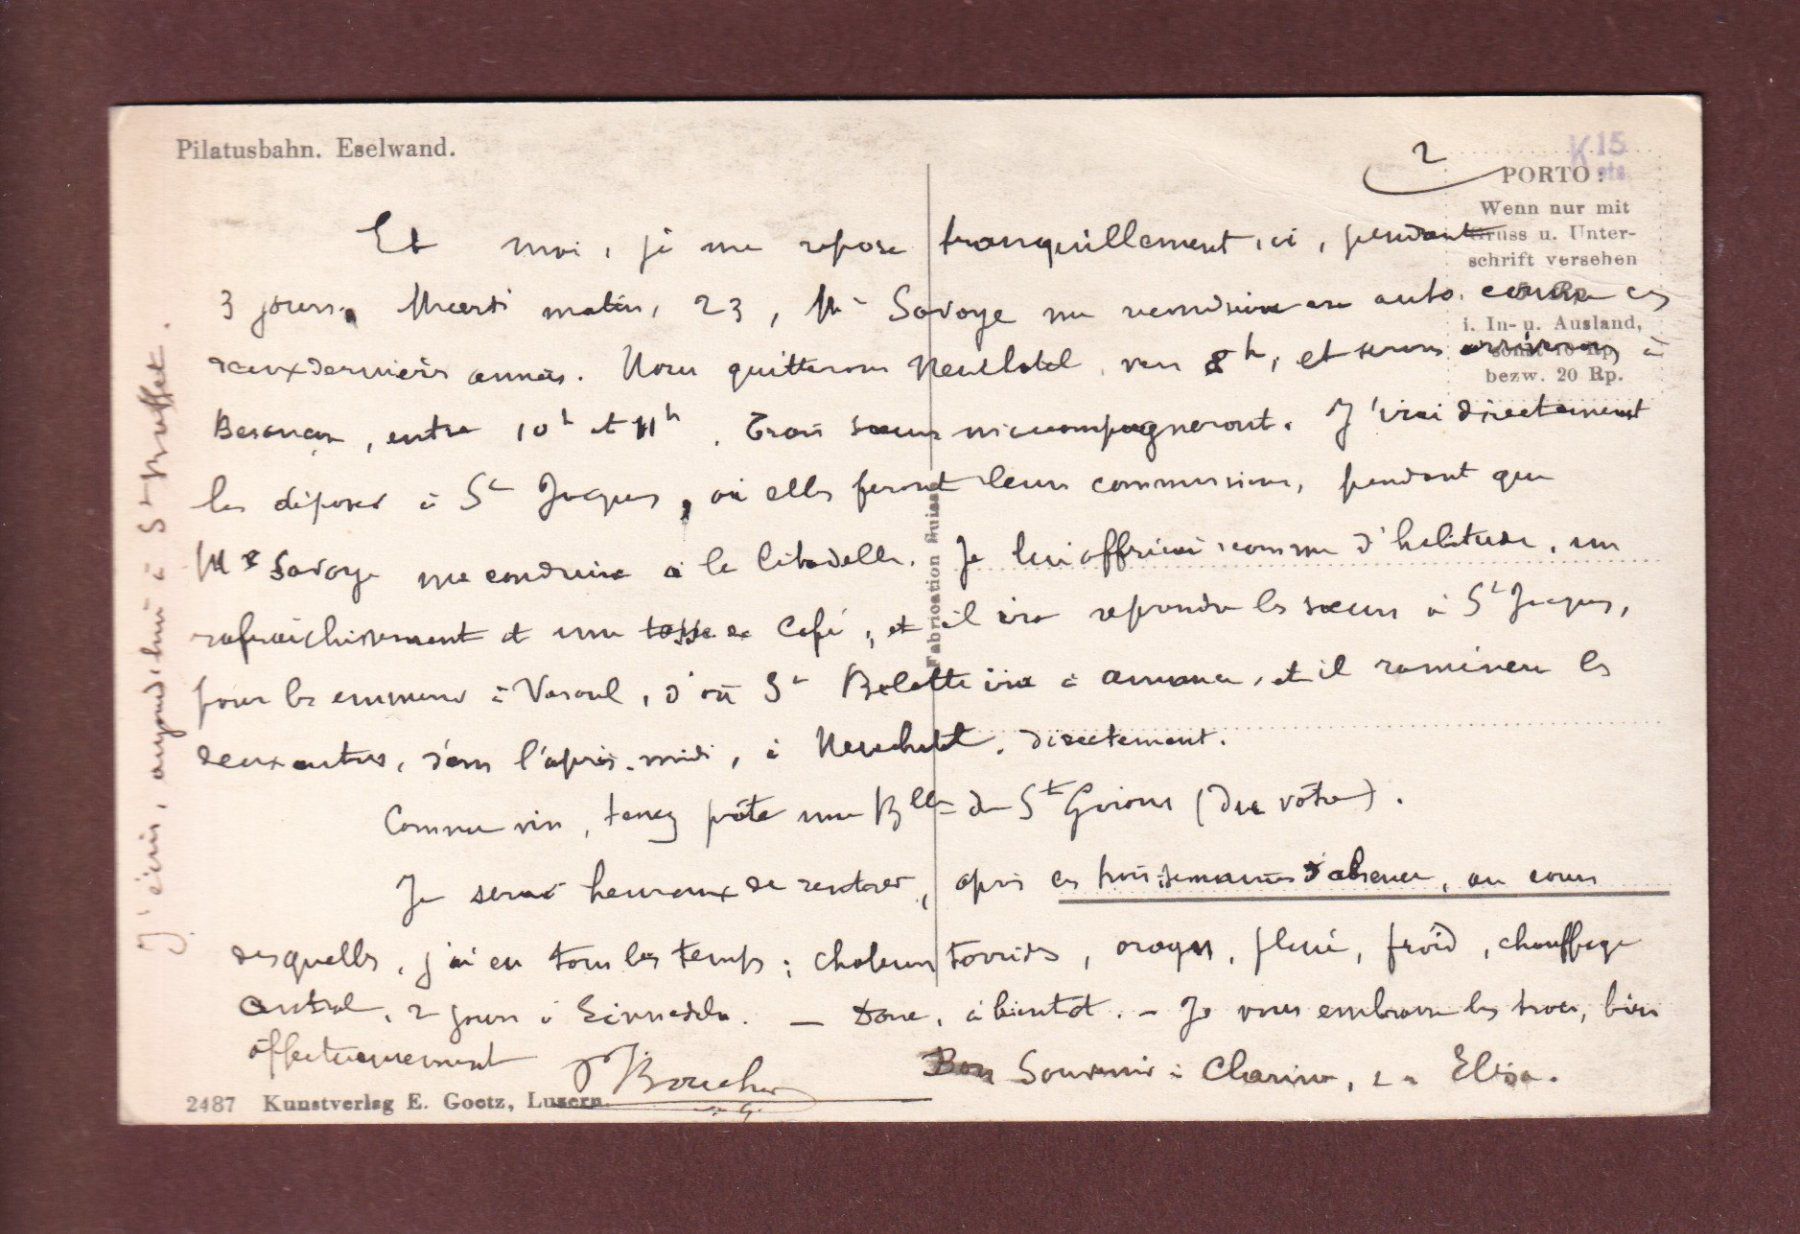 Pilatusbahn. Eselwand.
2
K 15
cts
PORTO:
Wenn nur mit
Gruss u. Unter-
schrift versehen
i. In- u. Ausland,
sonst 10 Rp.
bezw. 20 Rp.
Et moi, je me repose tranquillement, ici, pendant
3 jours. Mardi matin, 23, Mr Savoye me reconduira en auto, comme ces
deux dernières années. Nous quitterons Neuchatel, vers 8h, et serons à
Besançon, entre 10h et 11h. Trois sœurs m'accompagneront. J'irai directement
les déposer à St Jacques, où elles feront leurs commissions, pendant que
Mr Savoye me conduira à la Citadelle. Je lui offrirai, comme d'habitude, un
rafraichissement et une tasse de Café, et il ira reprendre les sœurs à St Jacques,
pour les emmener à Vesoul, d'où Sr ira à, et il ramènera les
deux autres, dans l'après-midi, à Neuchatel, directement.
Comme vin, tenez prête une Blle de St (du vôtre).
Je serai heureux de rentrer, après ces trois semaines d'absence, au cours
desquelles, j'ai eu tous les temps : chaleurs torrides, orages, pluie, froid, chauffage
central, 2 jours à Einsiedeln. — Donc, à bientôt. — Je vous embrasse les trois, bien
affectueusement Boucher
Bon Souvenir à Clarine, et à Elisa.
J'écris, aujourd'hui à Sr
Fabrication Suisse
2487 Kunstverlag E. Goetz, Luzern.